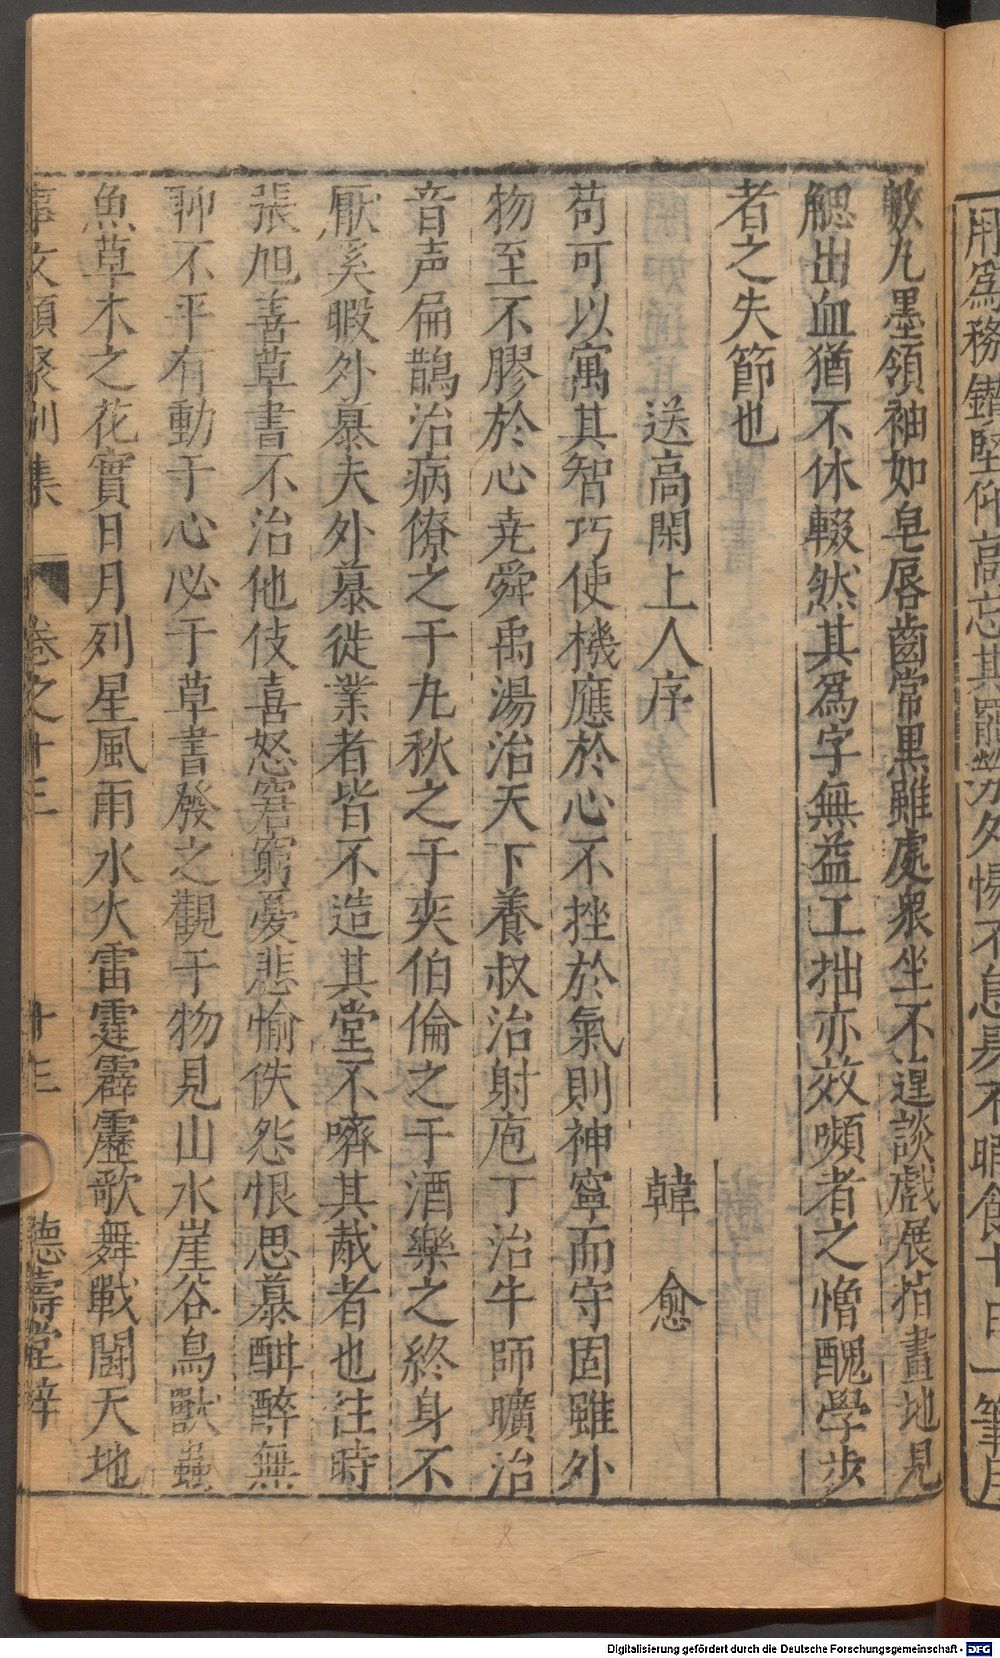 用爲務鑽堅仰高忘其罷勞夕惕不息昃不暇食十日一筆月
數丸墨領袖如皂唇齒常黒雖處衆坐不遑談戲展指畫地見
䚡出血猶不休輟然其爲字無益工拙亦效嚬者之憎醜學步
者之失節也
送高閑上人序 韓愈
苟可以寓其智巧使機應於心不挫於氣則神寧而守固雖外
物至不膠於心尭舜禹湯治天下養叔治射庖丁治牛師曠治
音声扁鵲治病僚之于丸秋之于奕伯倫之于酒樂之終身不
厭奚暇外慕夫外慕徙業者皆不造其堂不嚌其胾者也往時
張旭善草書不治他伎喜怒窘窮憂悲愉佚怨恨思慕酣醉無
聊不平有動于心必于草書發之觀于物見山水崖谷鳥獸蟲
魚草木之花實日月列星風雨水火雷霆霹靂歌舞戰鬪天地
事文類聚別集 卷之十三 十三 德壽堂梓
Digitalisierung gefördert durch die Deutsche Forschungsgemeinschaft - DFG